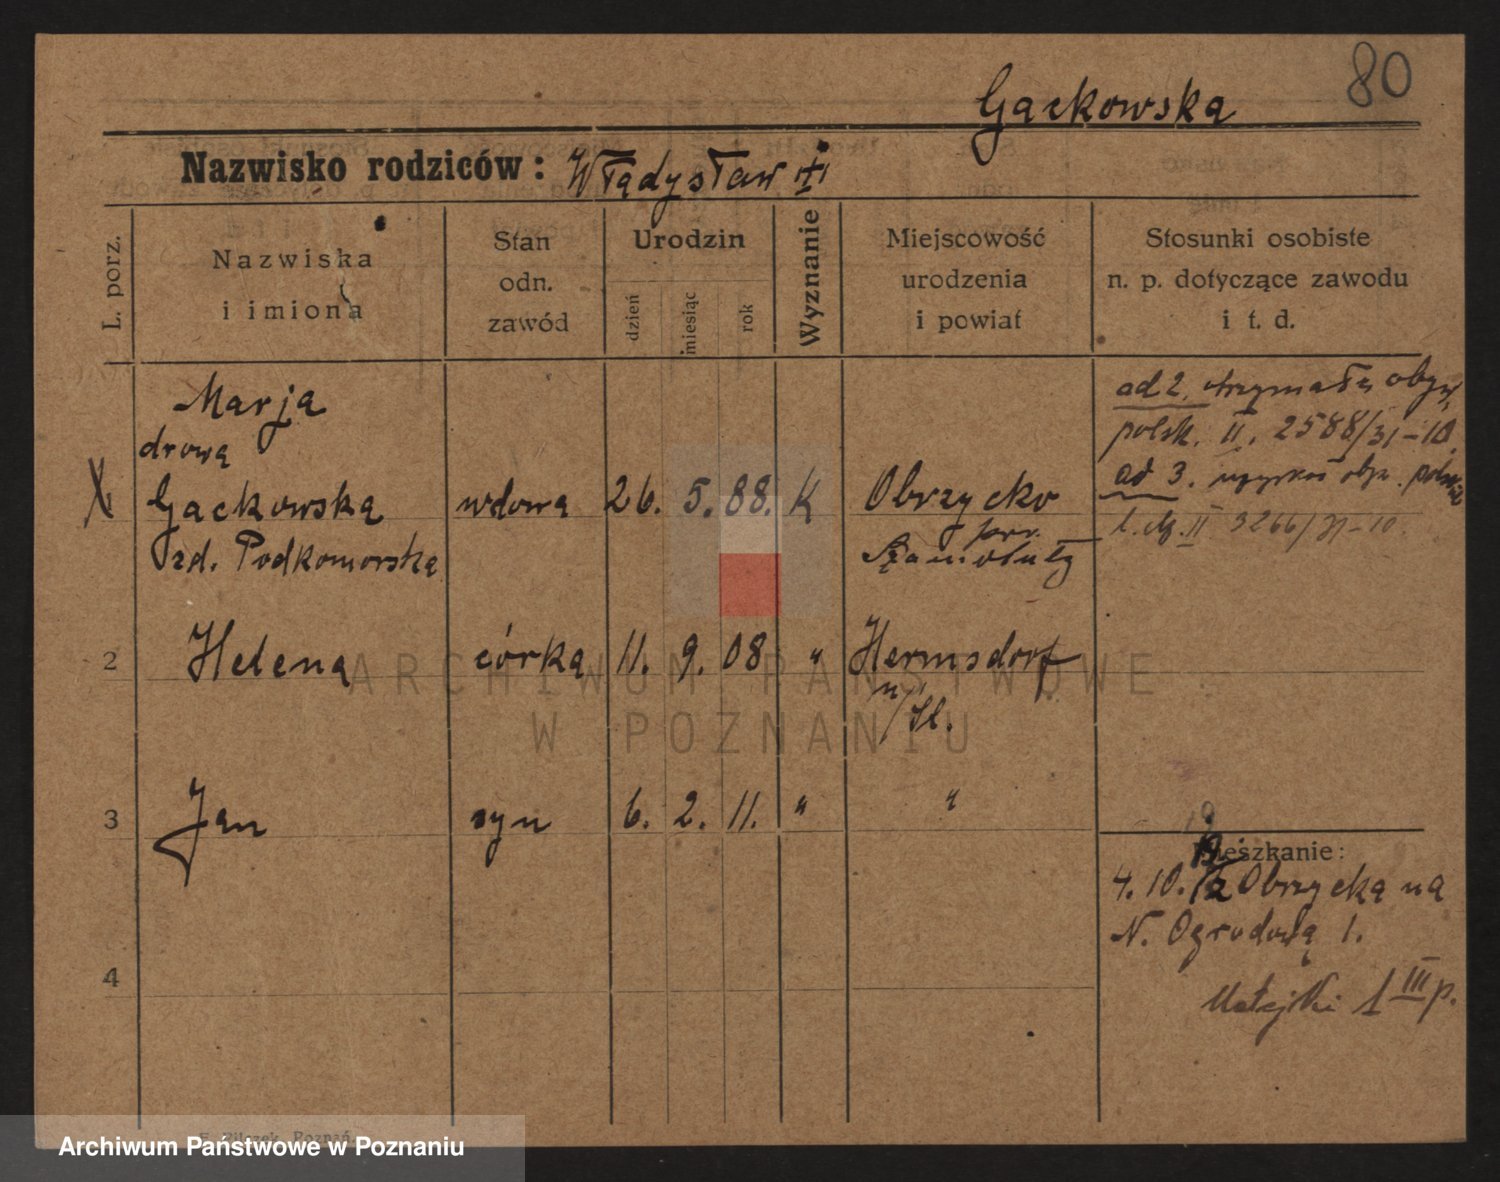 80
Gąckowska
Nazwisko rodziców: Władysław
L. porz.
Nazwiska
i imiona
Stan
odn.
zawód
Urodzin
dzień
miesiąc
rok
Wyznanie
Miejscowość
urodzenia
i powiat
Stosunki osobiste
n. p. dotyczące zawodu
i t. d.
Marja
drowa
Gąckowska wdowa 26. 5. 88. K Obrzycko
zd. Podkomorska
pow.
Szamotuły
ad 2. otrzymała obyw.
polsk. II. 2588/31-10
ad 3. uzyskał obyw. polskie
l. dz. II 3266/31-10.
2 Helena córka 11. 9. 08 " Hermsdorf
n/Śl.
3 Jan syn 6. 2. 11. " "
Mieszkanie:
4. 10. Obrzycka na
N. Ogrodową 1.
4
Matejki 1 III p.
ARCHIWUM PAŃSTWOWE
W POZNANIU
Poznań
Archiwum Państwowe w Poznaniu